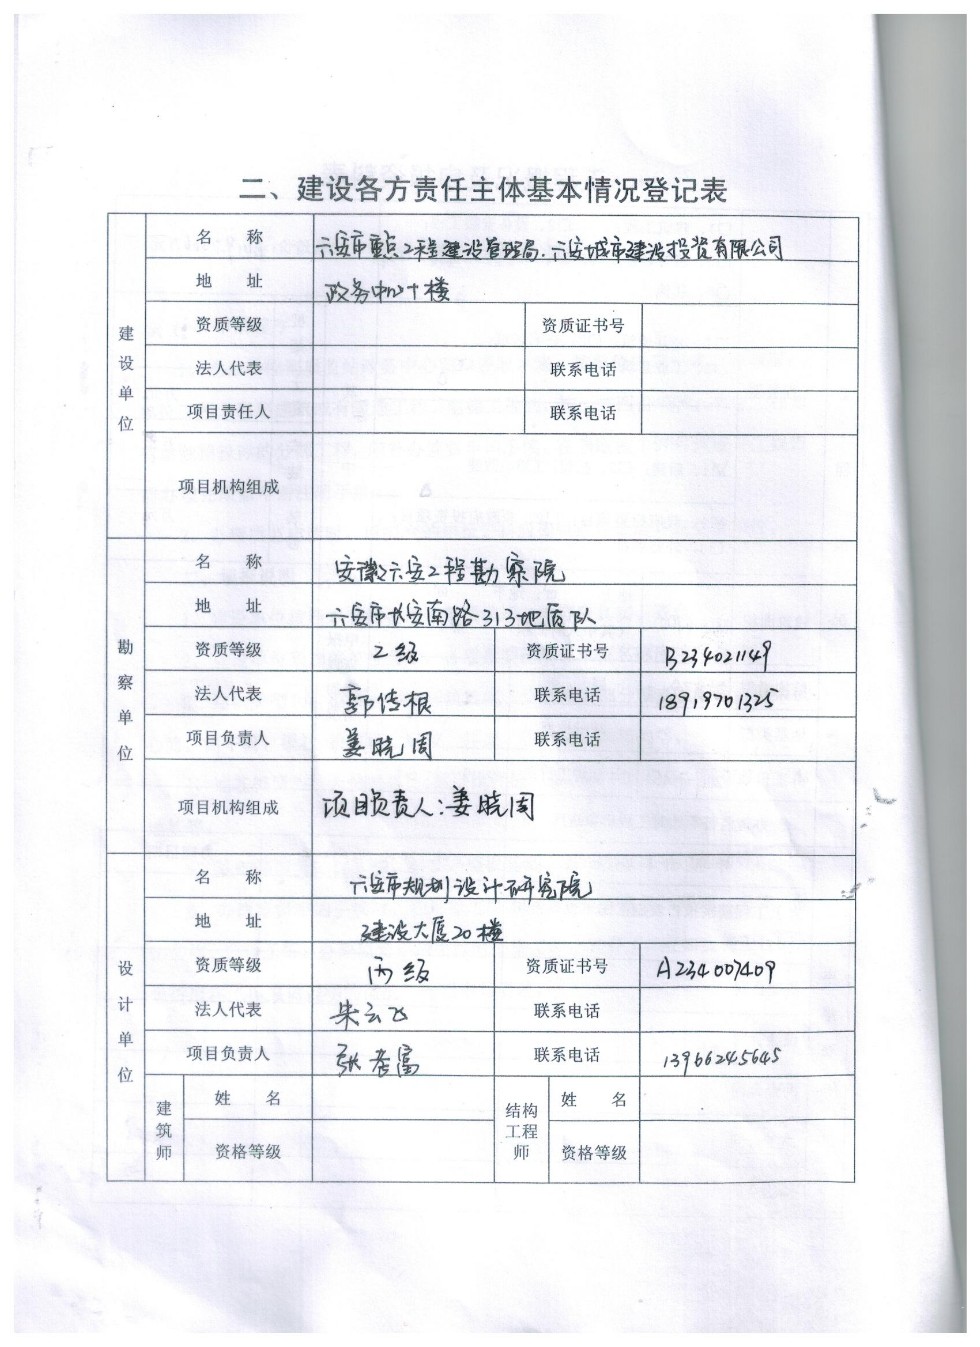 二、建设各方责任主体基本情况登记表
建设单位
名 称 六安市重点工程建设管理局.六安城市建设投资有限公司
地 址 政务中心十楼
资质等级 资质证书号
法人代表 联系电话
项目责任人 联系电话
项目机构组成
勘察单位
名 称 安徽六安工程勘察院
地 址 六安市长安南路313地质队
资质等级 乙级 资质证书号 B234021149
法人代表 郭传根 联系电话 18919701325
项目负责人 姜晓周 联系电话
项目机构组成 项目负责人:姜晓周
设计单位
名 称 六安市规划设计研究院
地 址 建设大厦20楼
资质等级 丙级 资质证书号 A234007409
法人代表 朱云飞 联系电话
项目负责人 张 富 联系电话 13966245645
建筑师 姓 名 结构工程师 姓 名
资格等级 资格等级